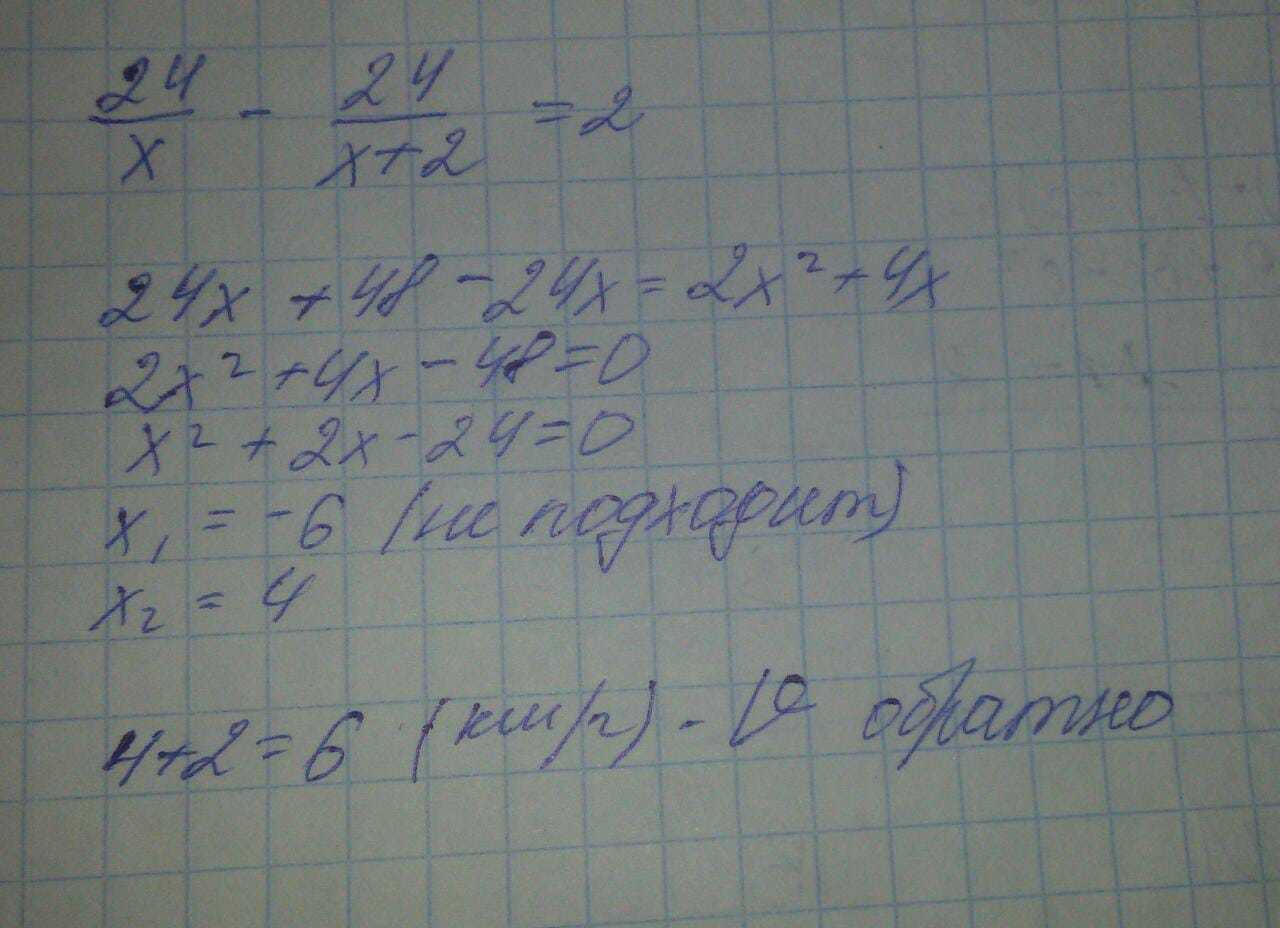 24/x - 24/(x+2) = 2
24x + 48 - 24x = 2x² + 4x
2x² + 4x - 48 = 0
x² + 2x - 24 = 0
x₁ = -6 (не подходит)
x₂ = 4
4+2=6 (км/ч) - V обратно